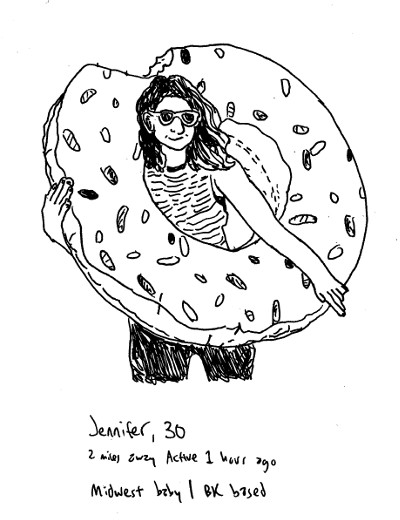 Jennifer, 30
2 miles away Active 1 hour ago
Midwest baby | BK based